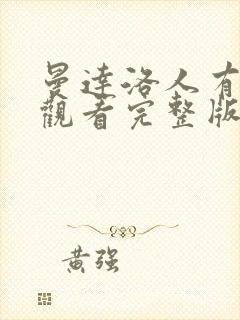 曼達洛人有
觀看完整版
黃强